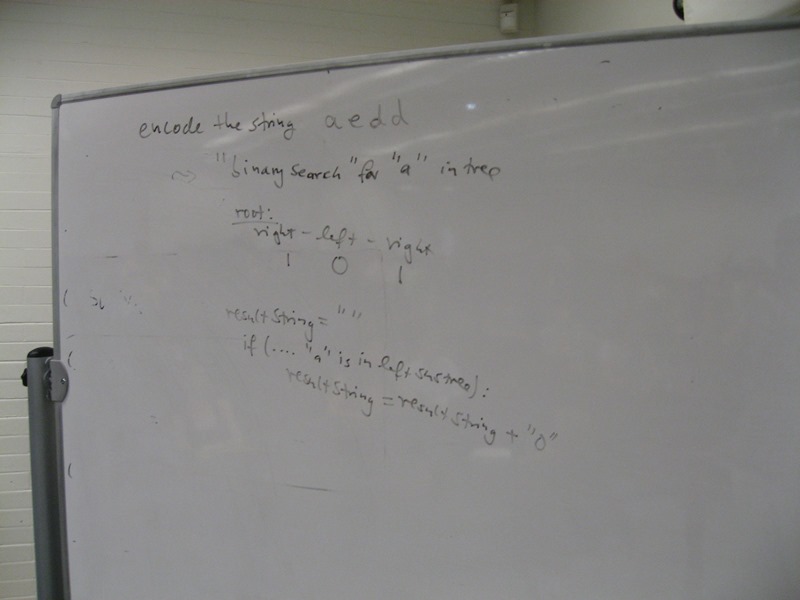 encode the string aedd
~> "binary search" for "a" in tree
root:
right - left - right
1 0 1
resultString = " "
if (.... "a" is in left subtree):
resultString = resultString + "0"